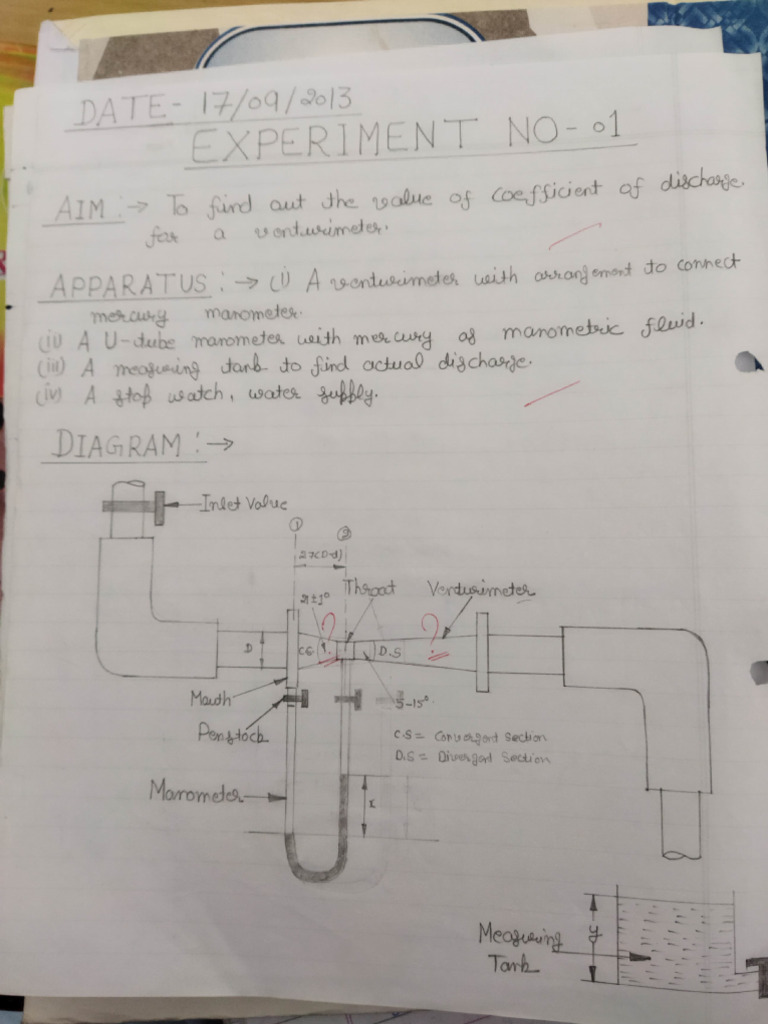 DATE- 17/09/2013
EXPERIMENT NO- 01
AIM :→ To find out the value of coefficient of discharge.
for a venturimeter.
APPARATUS : → (i) A venturimeter with arrangement to connect
mercury manometer.
(ii) A U-tube manometer with mercury as manometric fluid.
(iii) A measuring tank to find actual discharge.
(iv) A stop watch, water supply.
DIAGRAM :→
Inlet Value
① ②
2.7(D-d)
21±1° Throat Venturimeter
? ?
D C.S D.S
Mouth 5-15°
Penstock C.S = Convergent Section
D.S = Divergent Section
Manometer x
Measuring y
Tank